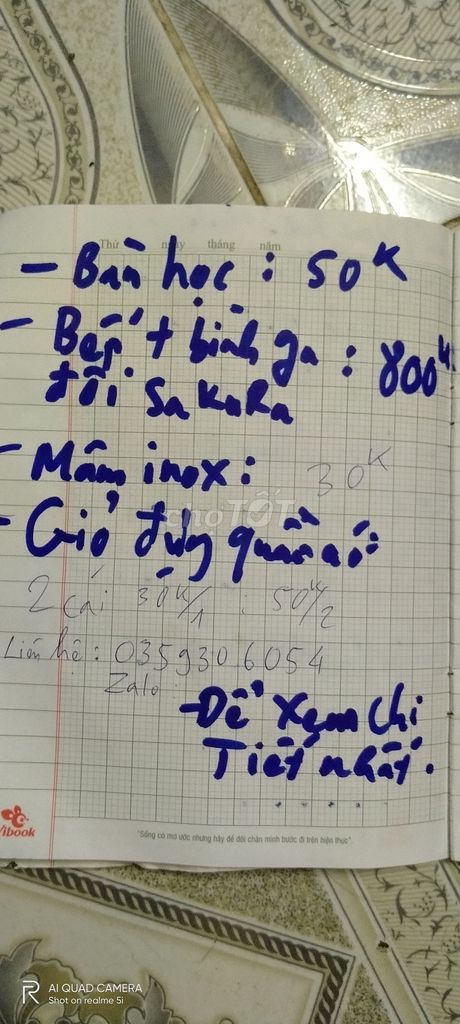 Thứ ngày tháng năm
- Bàn học : 50K
- Bếp + bình ga : 800K
đôi SaKuRa
- Mâm inox : 30K
- Giỏ đựng quần áo:
2 cái 30K/1 : 50K/2
Liên hệ : 0359306054
Zalo
- Để xem chi
Tiết nhất.
Vibook
"Sống có mơ ước nhưng hãy để đôi chân mình bước đi trên hiện thực"
choTỐT
AI QUAD CAMERA
Shot on realme 5i